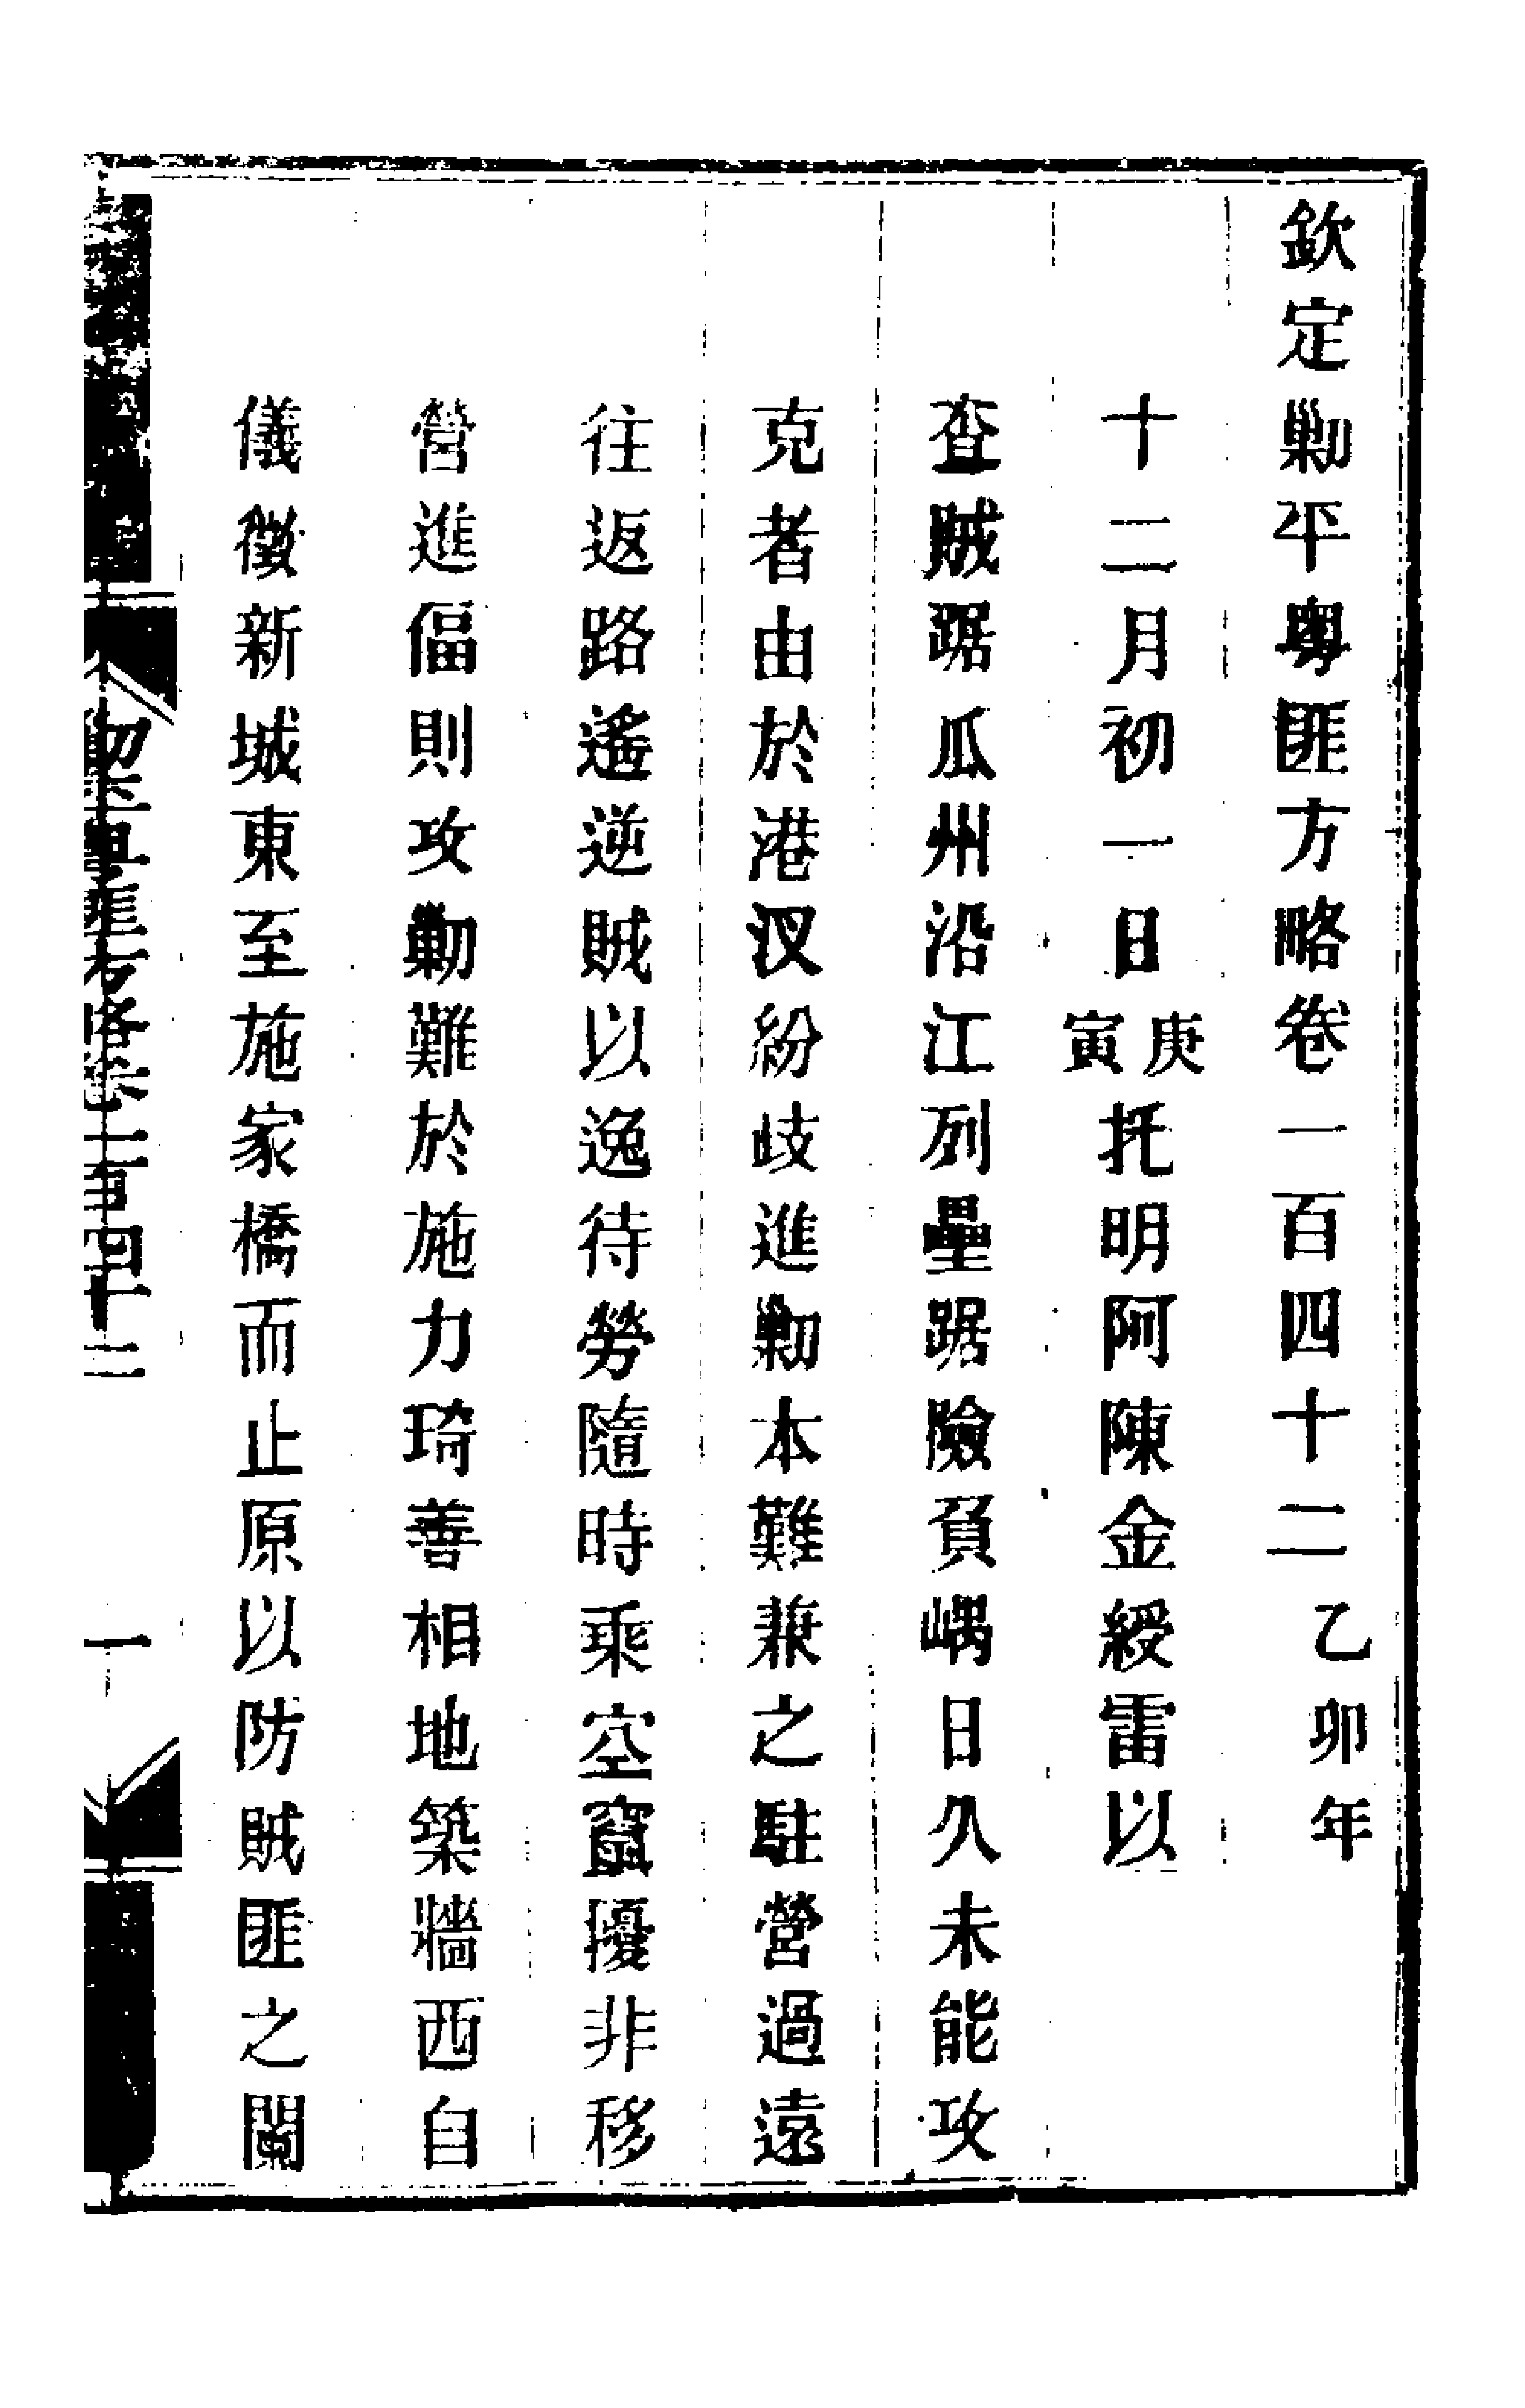 欽定剿平粤匪方略卷一百四十二 乙卯年
十二月初一日庚寅托明阿陳金綬雷以
查賊踞瓜州沿江列壘踞險負嵎日久未能攻
克者由於港汊紛歧進剿本難兼之駐營過遠
往返路遙逆賊以逸待勞隨時乘空竄擾非移
營進偪則攻剿難於施力琦善相地築牆西自
儀徵新城東至施家橋而止原以防賊匪之闌